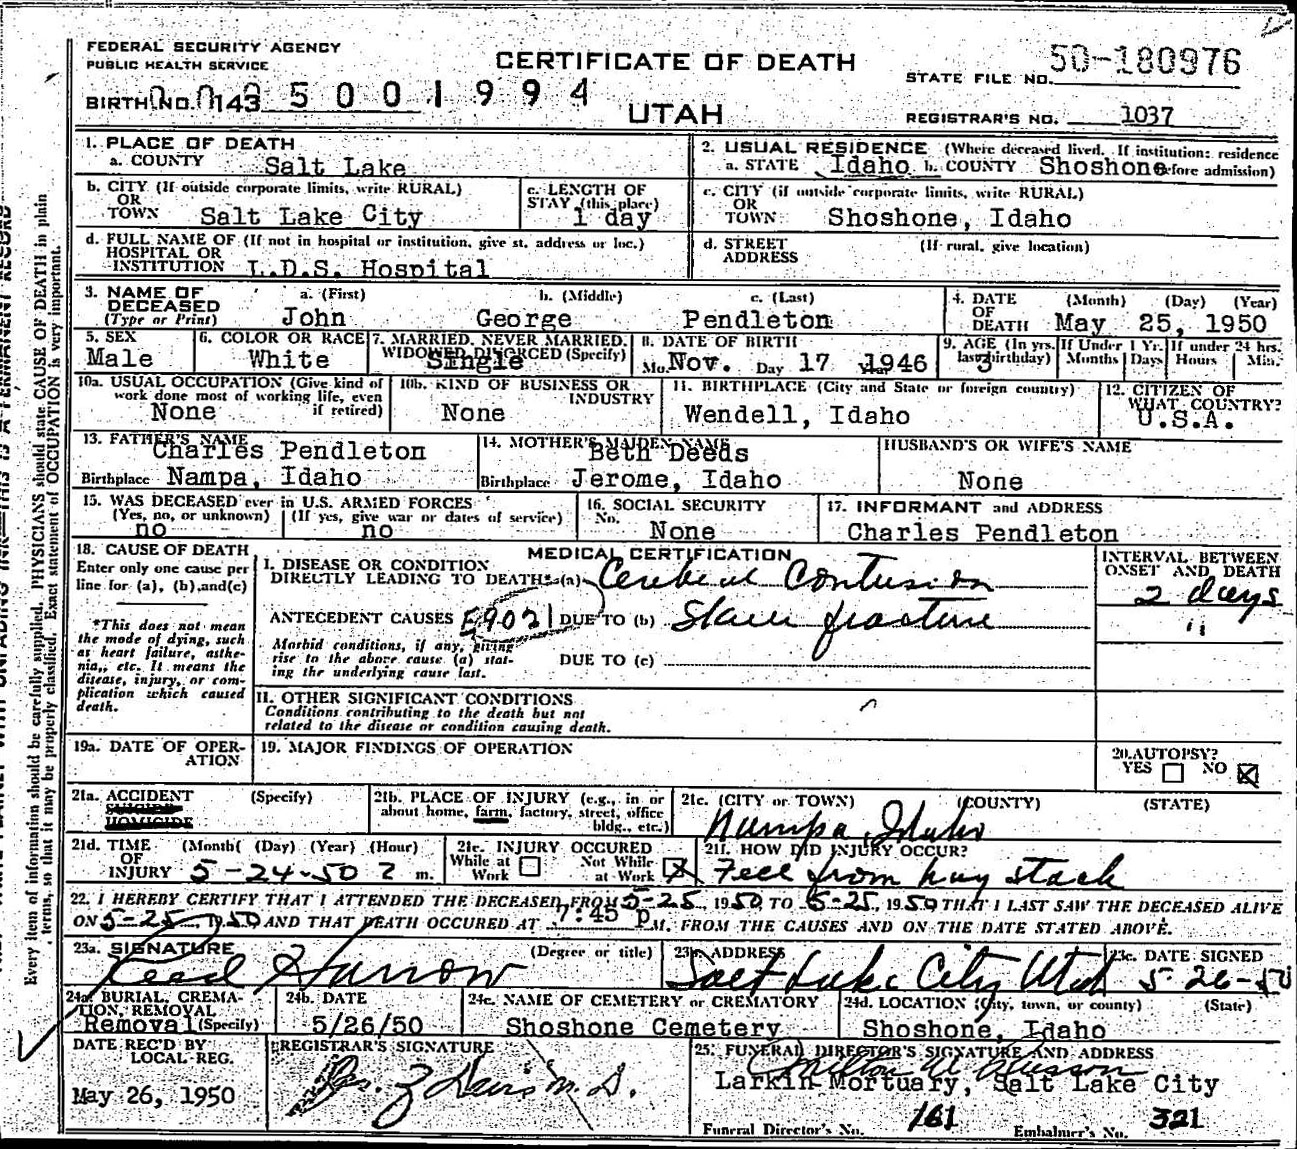 FEDERAL SECURITY AGENCY
PUBLIC HEALTH SERVICE
CERTIFICATE OF DEATH
UTAH
STATE FILE NO. 50-180976
BIRTH NO. 143 5001994
REGISTRAR'S NO. 1037
1. PLACE OF DEATH
a. COUNTY Salt Lake
2. USUAL RESIDENCE (Where deceased lived. If institution: residence before admission)
a. STATE Idaho b. COUNTY Shoshone
b. CITY (If outside corporate limits, write RURAL)
OR
TOWN Salt Lake City
c. LENGTH OF
STAY (this place)
1 day
c. CITY (if outside corporate limits, write RURAL)
OR
TOWN Shoshone, Idaho
d. FULL NAME OF (If not in hospital or institution, give st. address or loc.)
HOSPITAL OR
INSTITUTION L.D.S. Hospital
d. STREET (If rural, give location)
ADDRESS
3. NAME OF DECEASED (Type or Print)
a. (First) b. (Middle) c. (Last)
John George Pendleton
4. DATE OF DEATH (Month) (Day) (Year)
May 25, 1950
5. SEX
Male
6. COLOR OR RACE
White
7. MARRIED, NEVER MARRIED,
WIDOWED, DIVORCED (Specify)
Single
8. DATE OF BIRTH
Mo. Nov. Day 17 1946
9. AGE (In yrs. last birthday) If Under 1 Yr. If under 24 hrs.
3 Months Days Hours Min.
10a. USUAL OCCUPATION (Give kind of
work done most of working life, even
if retired)
None
10b. KIND OF BUSINESS OR
INDUSTRY
None
11. BIRTHPLACE (City and State or foreign country)
Wendell, Idaho
12. CITIZEN OF
WHAT COUNTRY?
U.S.A.
13. FATHER'S NAME
Charles Pendleton
Birthplace Nampa, Idaho
14. MOTHER'S MAIDEN NAME
Beth Deeds
Birthplace Jerome, Idaho
HUSBAND'S OR WIFE'S NAME
None
15. WAS DECEASED ever in U.S. ARMED FORCES
(Yes, no, or unknown) (If yes, give war or dates of service)
no no
16. SOCIAL SECURITY
No.
None
17. INFORMANT and ADDRESS
Charles Pendleton
18. CAUSE OF DEATH
Enter only one cause per
line for (a), (b), and (c)
*This does not mean
the mode of dying, such
as heart failure, asthe-
nia, etc. It means the
disease, injury, or com-
plication which caused
death.
MEDICAL CERTIFICATION
I. DISEASE OR CONDITION
DIRECTLY LEADING TO DEATH* (a) Cerebral Contusion
ANTECEDENT CAUSES E9021 DUE TO (b) Skull fracture
Morbid conditions, if any, giving
rise to the above cause (a) stat-
ing the underlying cause last.
DUE TO (c)
INTERVAL BETWEEN
ONSET AND DEATH
2 days
"
II. OTHER SIGNIFICANT CONDITIONS
Conditions contributing to the death but not
related to the disease or condition causing death.
19a. DATE OF OPER-
ATION
19. MAJOR FINDINGS OF OPERATION
20. AUTOPSY?
YES NO
21a. ACCIDENT (Specify)
SUICIDE
HOMICIDE
21b. PLACE OF INJURY (e.g., in or
about home, farm, factory, street, office
bldg., etc.)
21c. (CITY or TOWN) (COUNTY) (STATE)
Nampa, Idaho
21d. TIME (Month) (Day) (Year) (Hour)
OF
INJURY 5-24-50 2 m.
21e. INJURY OCCURED
While at Work Not While at Work
21f. HOW DID INJURY OCCUR?
Fell from hay stack
22. I HEREBY CERTIFY THAT I ATTENDED THE DECEASED FROM 5-25, 1950, TO 5-25, 1950 THAT I LAST SAW THE DECEASED ALIVE
ON 5-25, 1950 AND THAT DEATH OCCURED AT 7:45 P M. FROM THE CAUSES AND ON THE DATE STATED ABOVE.
23a. SIGNATURE (Degree or title)
Reed Harrow
23b. ADDRESS
Salt Lake City Utah
23c. DATE SIGNED
5-26-50
24a. BURIAL, CREMA-
TION, REMOVAL
Removal (Specify)
24b. DATE
5/26/50
24c. NAME OF CEMETERY or CREMATORY
Shoshone Cemetery
24d. LOCATION (City, town, or county) (State)
Shoshone, Idaho
DATE REC'D BY
LOCAL REG.
May 26, 1950
REGISTRAR'S SIGNATURE
M.D.
25. FUNERAL DIRECTOR'S SIGNATURE AND ADDRESS
Larkin Mortuary, Salt Lake City
Funeral Director's No. 161 Embalmer's No. 321
Every item of information should be carefully supplied. PHYSICIANS should state CAUSE OF DEATH in plain
terms, so that it may be properly classified. Exact statement of OCCUPATION is very important.